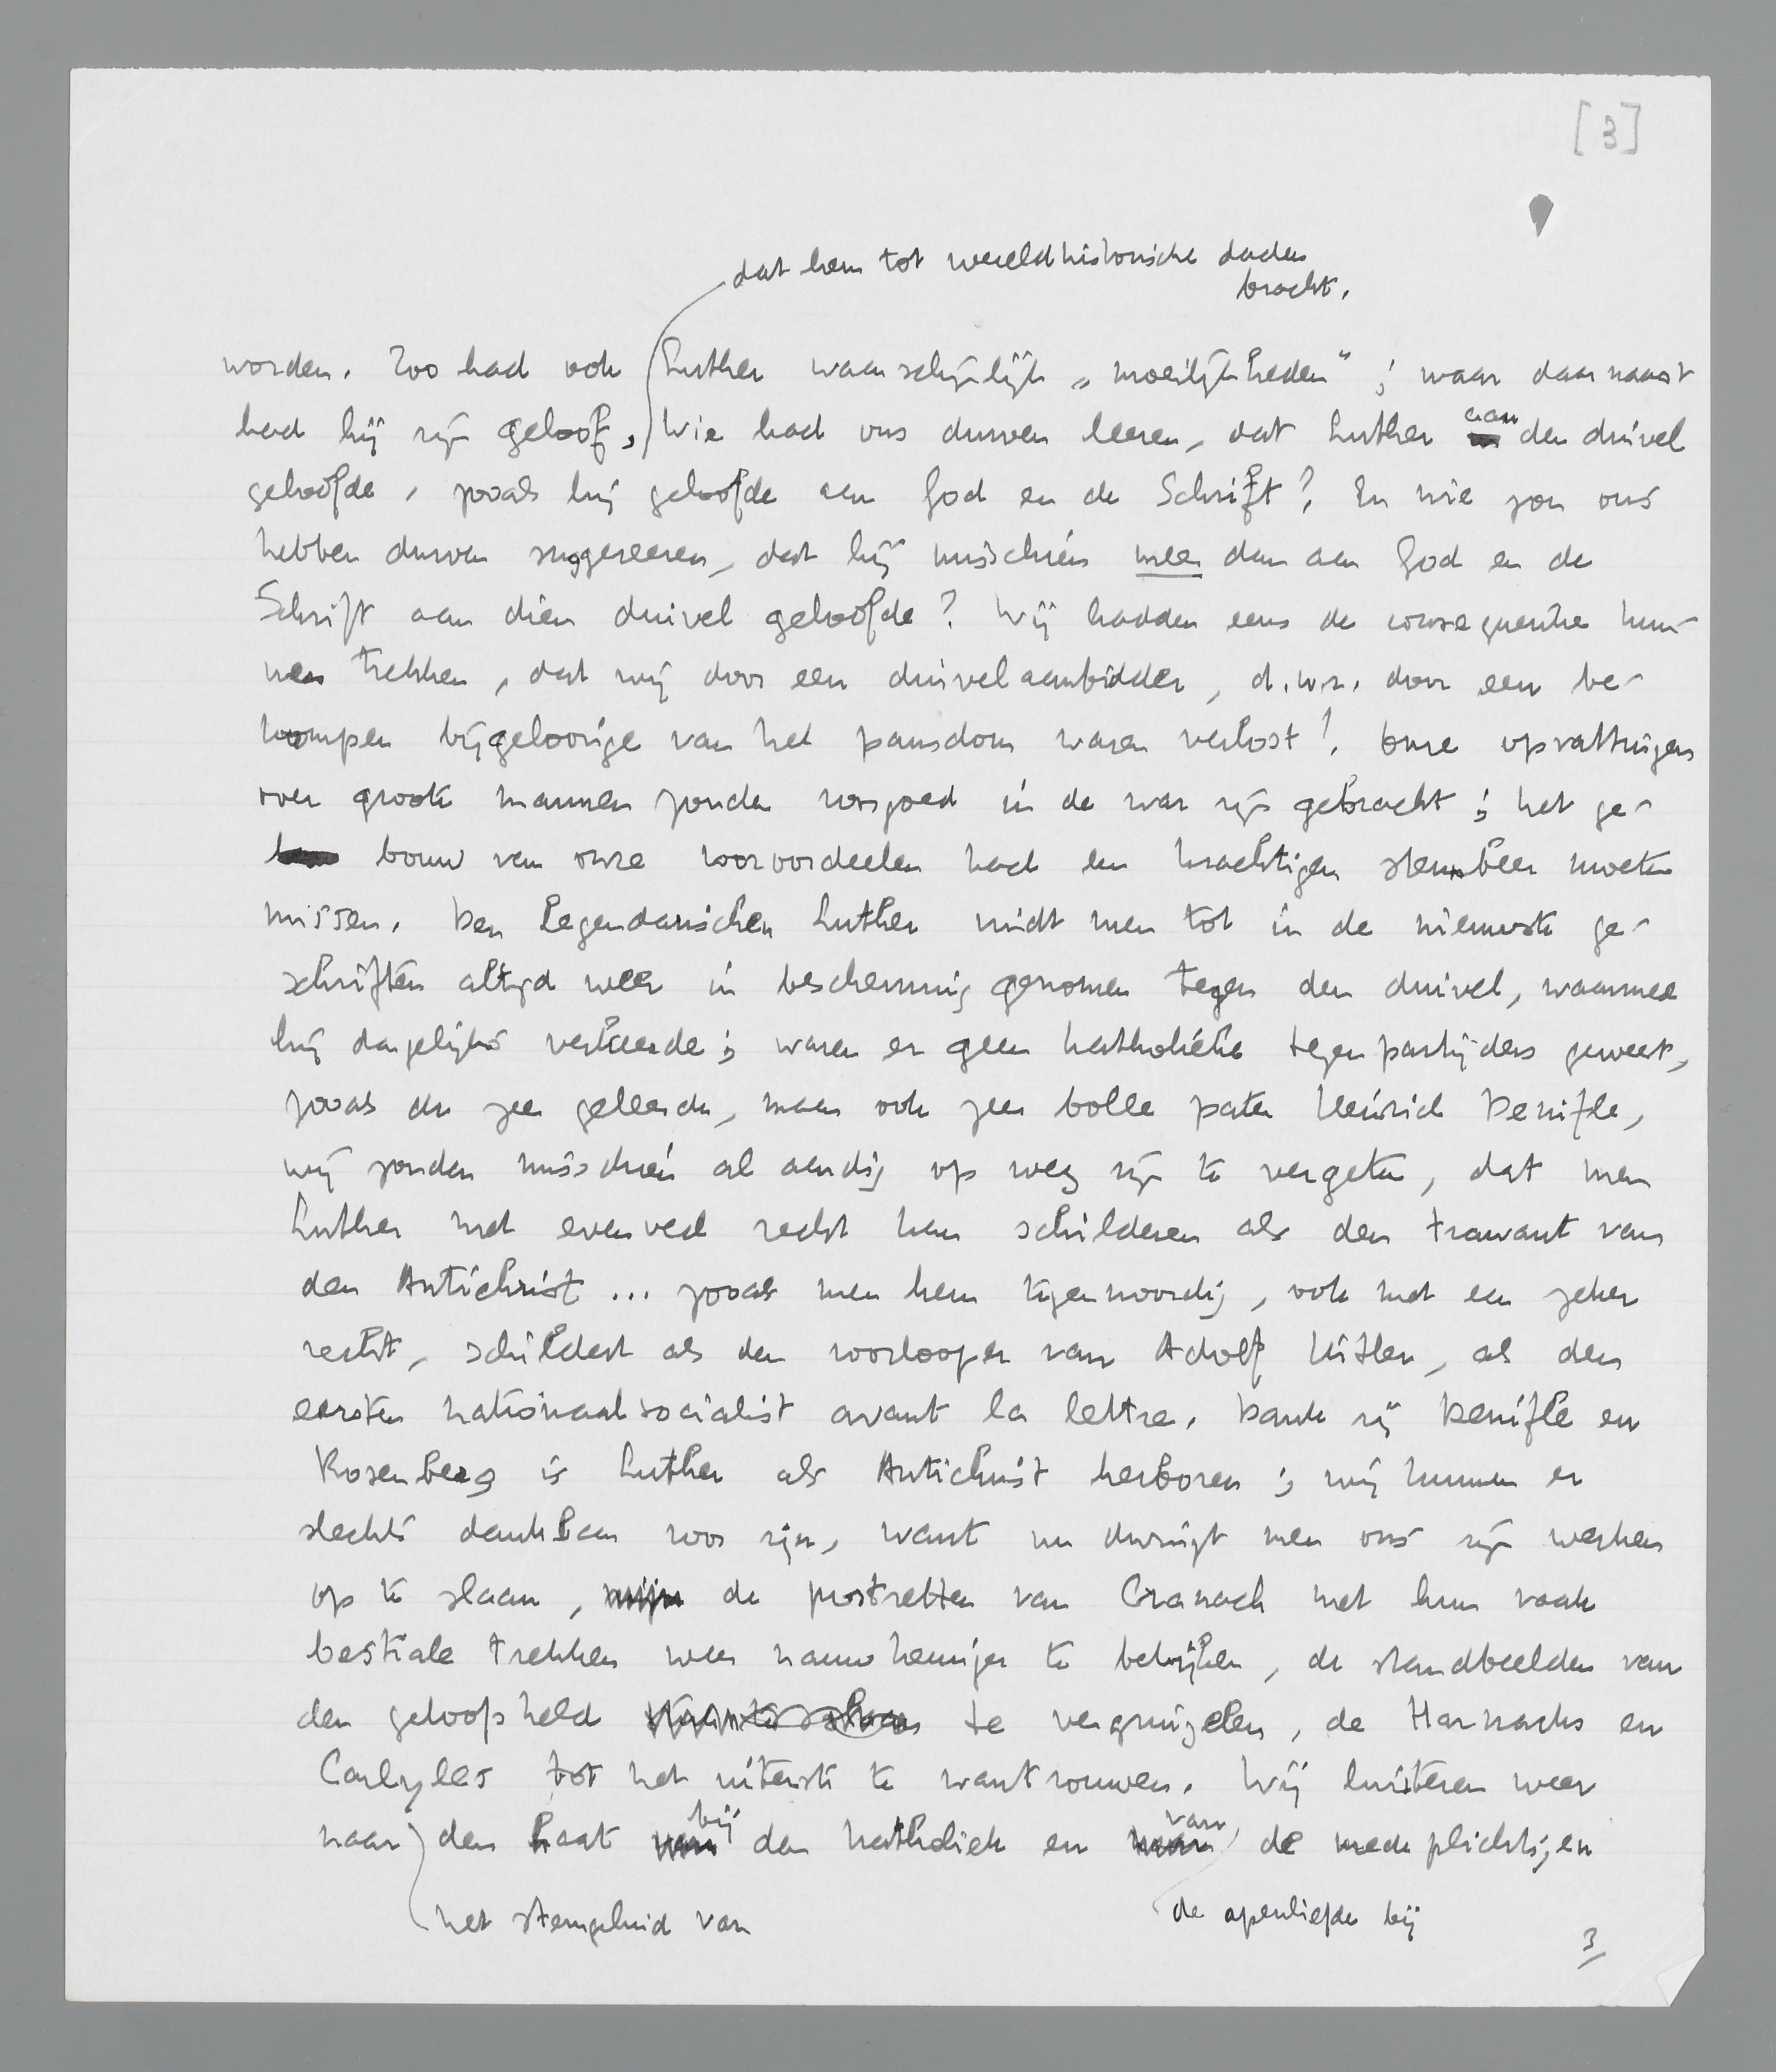 [3]
dat hem tot wereldhistorische daden
bracht.
worden. Zoo had ook Luther waarschijnlijk „moeilijkheden"; maar daarnaast
had hij zijn geloof, Wie had ons durven leeren, dat Luther aan den duivel
geloofde, zooals hij geloofde aan God en de Schrift? En wie zou ons
hebben durven suggereeren, dat hij misschien meer dan aan God en de
Schrift aan dien duivel geloofde? Wij hadden eens de consequentie kun-
nen trekken, dat wij door een duivelaanbidder, d.w.z. door een be-
krompen bijgeloovige van het pausdom waren verlost! Onze opvattingen
over groote mannen zouden voorgoed in de war zijn gebracht; het ge-
bouw van onze vooroordeelen had een krachtigen steunbeer moeten
missen. Den legendarischen Luther vindt men tot in de nieuwste ge-
schriften altijd weer in bescherming genomen tegen den duivel, waarmee
hij dagelijks verkeerde; waren er geen katholieke tegenpartijders geweest,
zooals de zeer geleerde, maar ook zeer bolle pater Heinrich Denifle,
wij zouden misschien al aardig op weg zijn te vergeten, dat men
Luther met evenveel recht kan schilderen als den trawant van
den Antichrist ... zooals men hem tegenwoordig, ook met een zeker
recht, schildert als den voorlooper van Adolf Hitler, als den
eersten nationaalsocialist avant la lettre. Dank zij Denifle en
Rosenberg is Luther als Antichrist herboren; wij kunnen er
slechts dankbaar voor zijn, want nu dwingt men ons zijn werken
op te slaan, de portretten van Cranach met hun vaak
bestiale trekken weer nauwkeuriger te bekijken, de standbeelden van
den geloofsheld te vergruizelen, de Harnacks en
Carlyles tot het uiterste te wantrouwen. Wij luisteren weer
naar den haat bij den katholiek en van de medeplichtigen
het stemgeluid van
de apenliefde bij
3